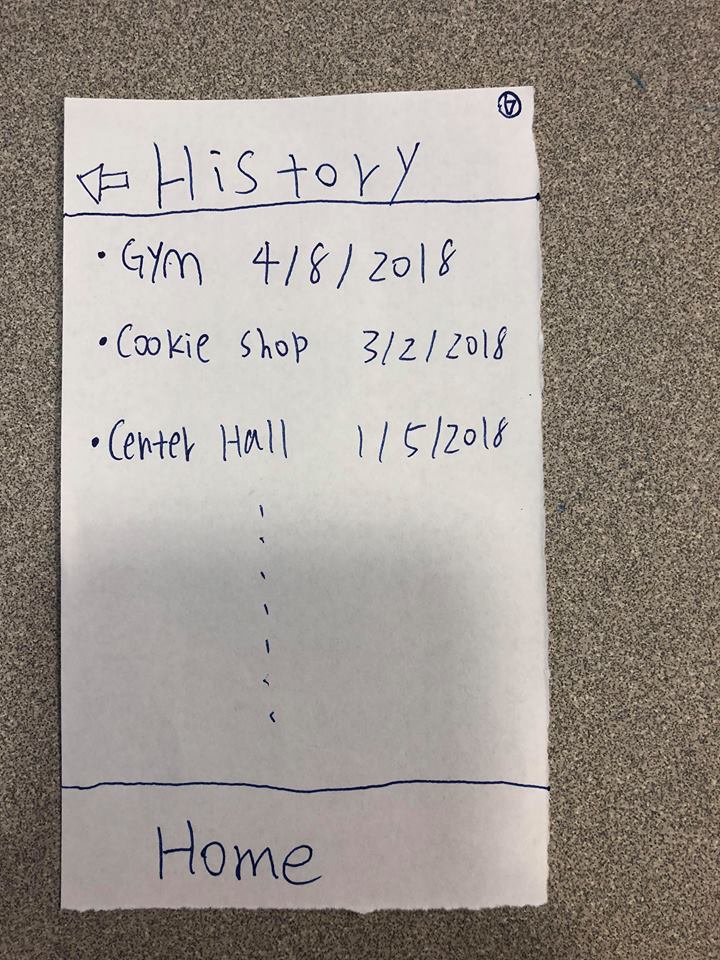 History
• Gym 4/8/2018
• Cookie shop 3/2/2018
• Center Hall 1/5/2018
Home